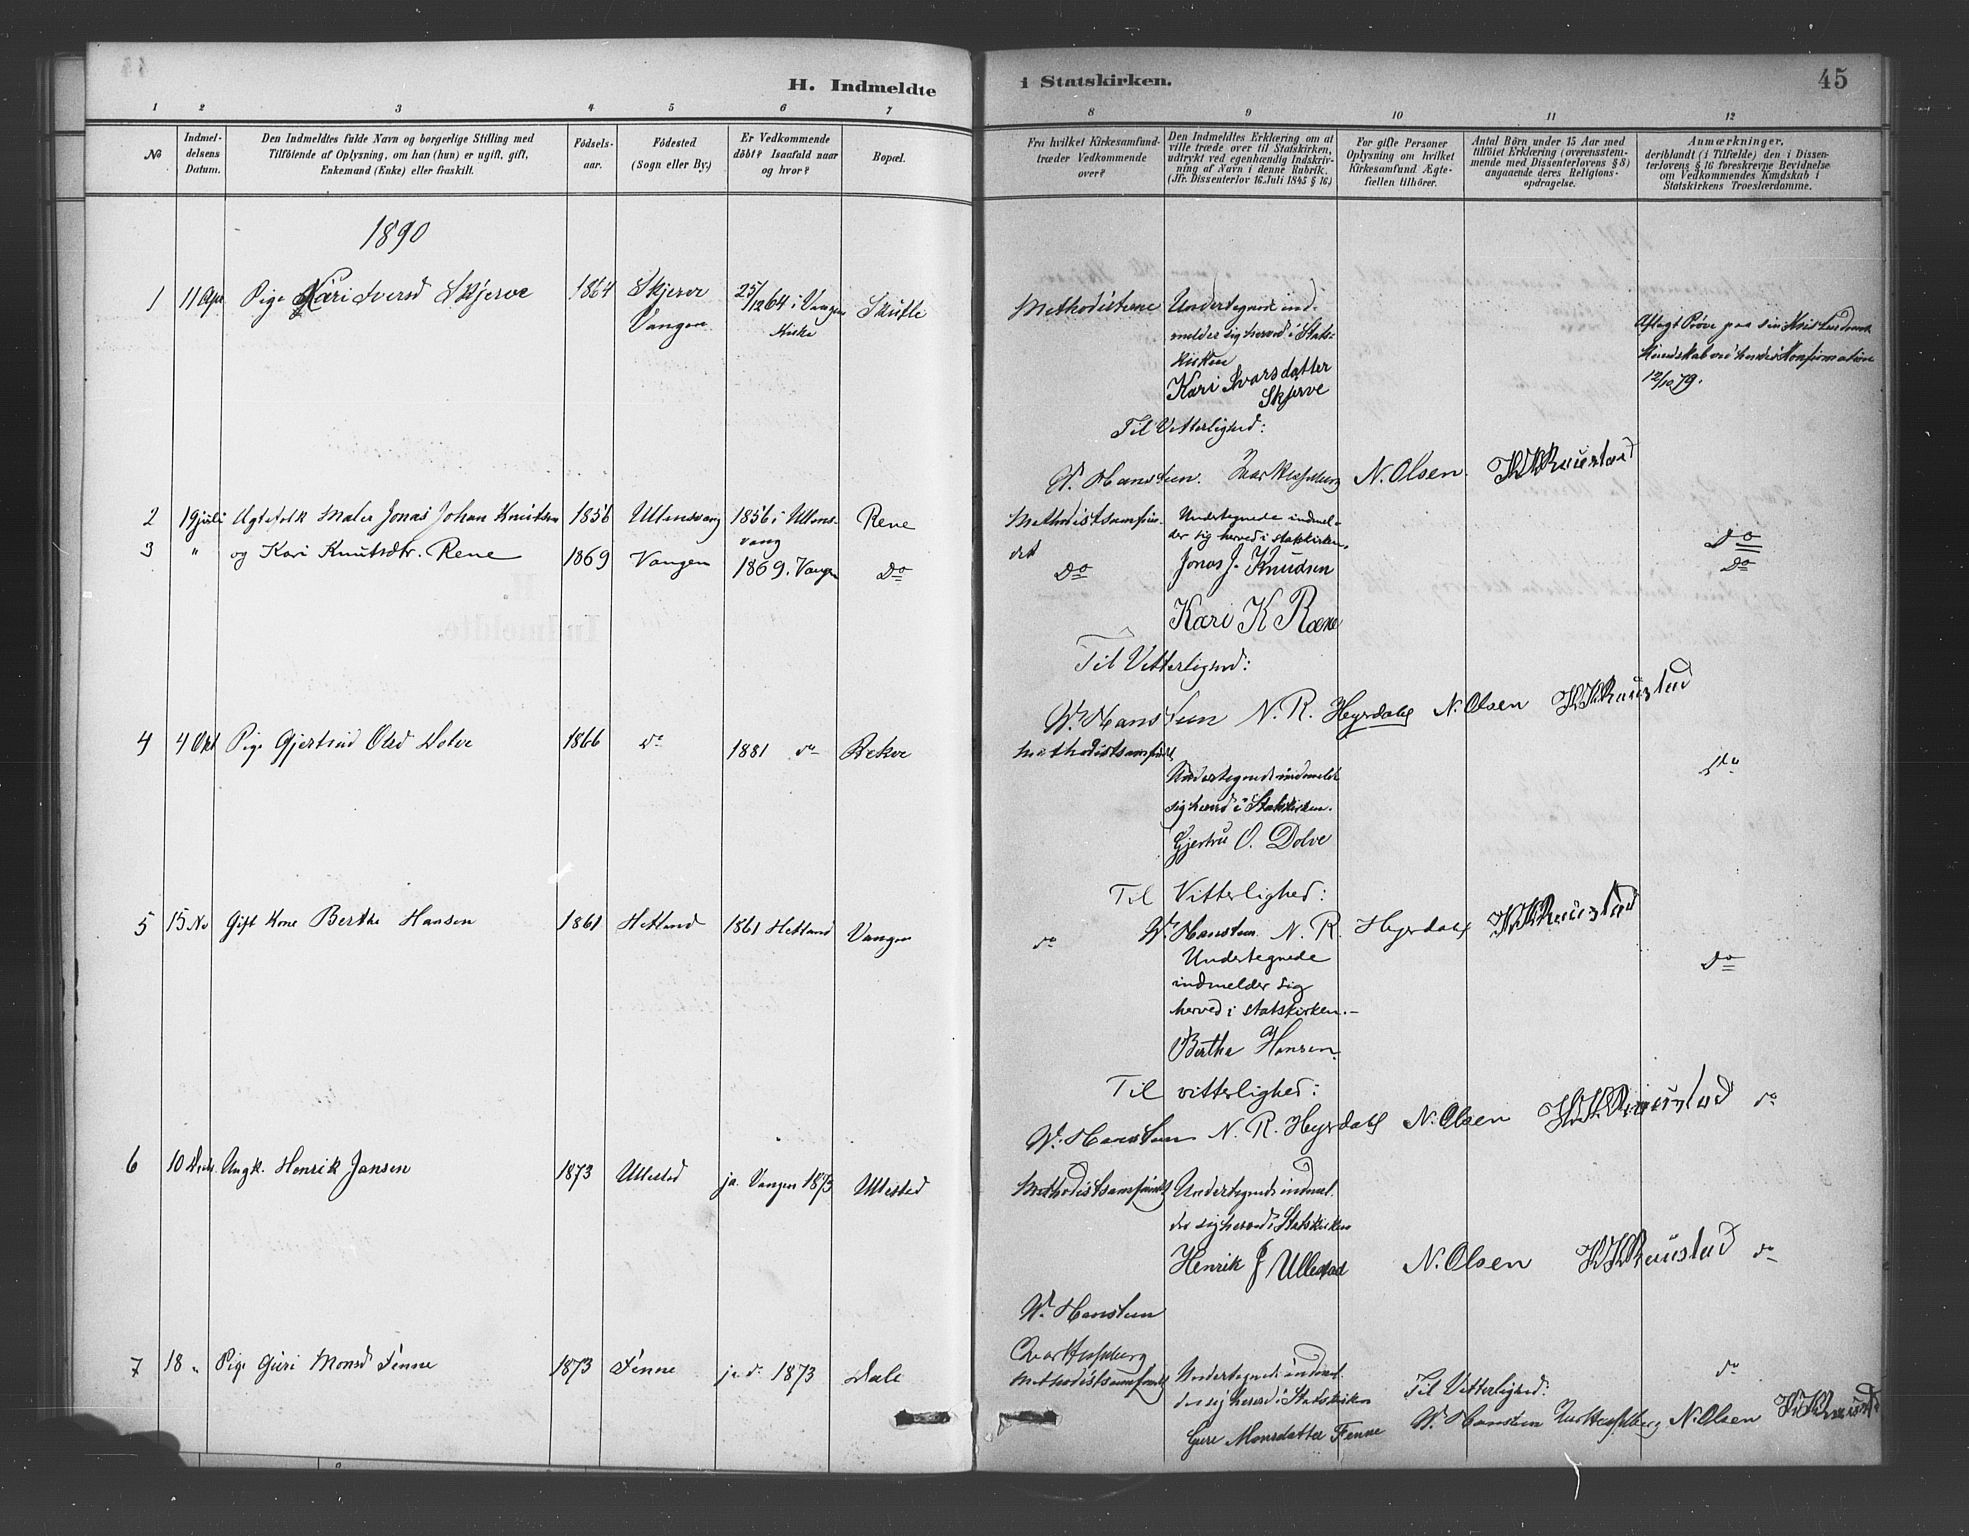 H. Indmeldte
i Statskirken.
45
1 2 3 4 5 6 7 8 9 10 11 12
No
Indmeldelsens Datum.
Den Indmeldtes fulde Navn og borgerlige Stilling med
Tilføiende af Oplysning, om han (hun) er ugift, gift,
Enkemand (Enke) eller fraskilt.
Fødselsaar.
Fødested
(Sogn eller By.)
Er Vedkommende
døbt? Isaafald naar
og hvor?
Bopæl.
Fra hvilket Kirkesamfund
træder Vedkommende
over?
Den Indmeldtes Erklæring om at
ville træde over til Statskirken,
udtrykt ved egenhændig Indskrivning
af Navn i denne Rubrik.
(Jfr. Dissenterlov 16. Juli 1845 § 16)
For gifte Personer
Oplysning om hvilket
Kirkesamfund Ægtefællen
tilhører.
Antal Børn under 15 Aar med
tilføiet Erklæring (overensstemmende
med Dissenterlovens § 8)
angaaende deres Religionsopdragelse.
Anmærkninger,
deriblandt (i Tilfælde) den i Dissenterlovens
§ 16 foreskrevne Bevidnelse
om Vedkommendes Kundskab i
Statskirkens Troeslærdomme.
1890
1 11 Apr Pige Kari Iversd Skjerve 1864 Skjerve
Vangen
25/12 64 i Vangen
Kirke
Skutle
Methodisterne
Undertegnede ind-
melder sig herved i Stats-
kirken
Kari Ivarsdatter
Skjerve
Aflagt Prøve paa sin Kristendoms
Kundskab ved hendes Konfirmation
12/10 79.
Til Vitterlighed:
W. Hansteen. N. Olsen. K K Raustad
2 1 Juli Ægtefolk Maler Jonas Johan Knutsen 1856 Ullensvang 1856 i Ullens-
vang
Rene
Methodistsamfun-
det
Undertegnede indmel-
der sig herved i statskirken.
Jonas J. Knudsen
Do
3 " og Kari Knutsdtr. Rene 1869 Vangen 1869. Vangen Do
Do
Kari K Rene
Do
Til Vitterlighed:
W. Hansteen N. R. Heyerdahl N. Olsen K K Raustad
4 4 Okt Pige Gjertrud Olsd Dolve 1866 do 1881 do Rekve
Methodistsamfundet
Undertegnede indmeld
sig herved i Statskirken.
Gjertru O. Dolve
do
Til Vitterlighed:
W. Hansteen N. R. Heyerdahl K K Raustad
5 15 No Gift Kone Berthe Hansen 1861 Hetland 1861 Hetland Vangen
do
Undertegnede
indmelder sig
herved i statskirken.-
Berthe Hansen.
Do
Til vitterlighed:
W. Hansteen N. R. Heyerdahl N. Olsen K K Raustad do
6 10 Decb. Ungk. Henrik Jansen 1873 Ullestad ja. Vangen 1873 Ullestad
Methodistsamfundet
Undertegnede indmel-
der sig herved i Statskirken
Henrik J Ullestad N. Olsen K K Raustad do
W. Hansteen
7 18 " Pige Guri Monsd Finne 1873 Finne ja d. 1873 Dale
Methodistsamfundet
Undertegnede indmel-
der sig herved i Statskirken
Guri Monsdatter Finne
do
Til Vitterlighed:
W. Hansteen N. Olsen K K Raustad